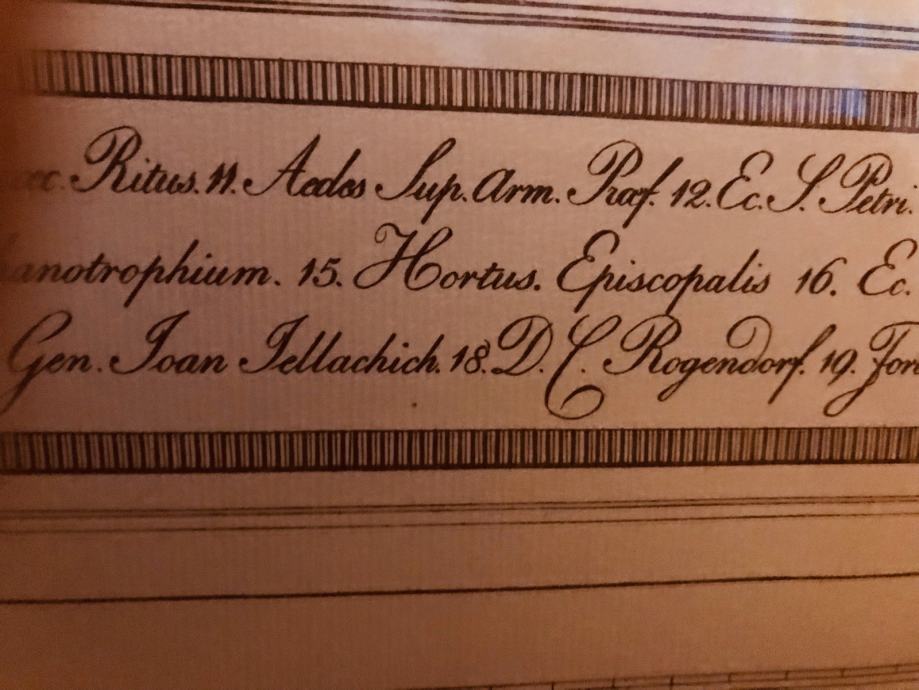 Ritus. 11. Aedes Sup. Arm. Præf. 12. Ec. S. Petri.
15. Hortus. Episcopalis 16. Ec.
Gen. Ioan Iellachich. 18. D. C. Rogendorf. 19.